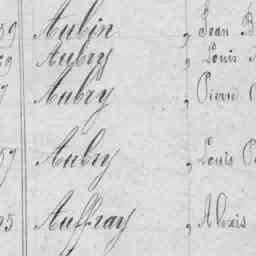 59 Aubin , Jean B
59 Aubry , Louis
Aubry , Pierre
57 Aubry , Louis P
Auffray , Alexis